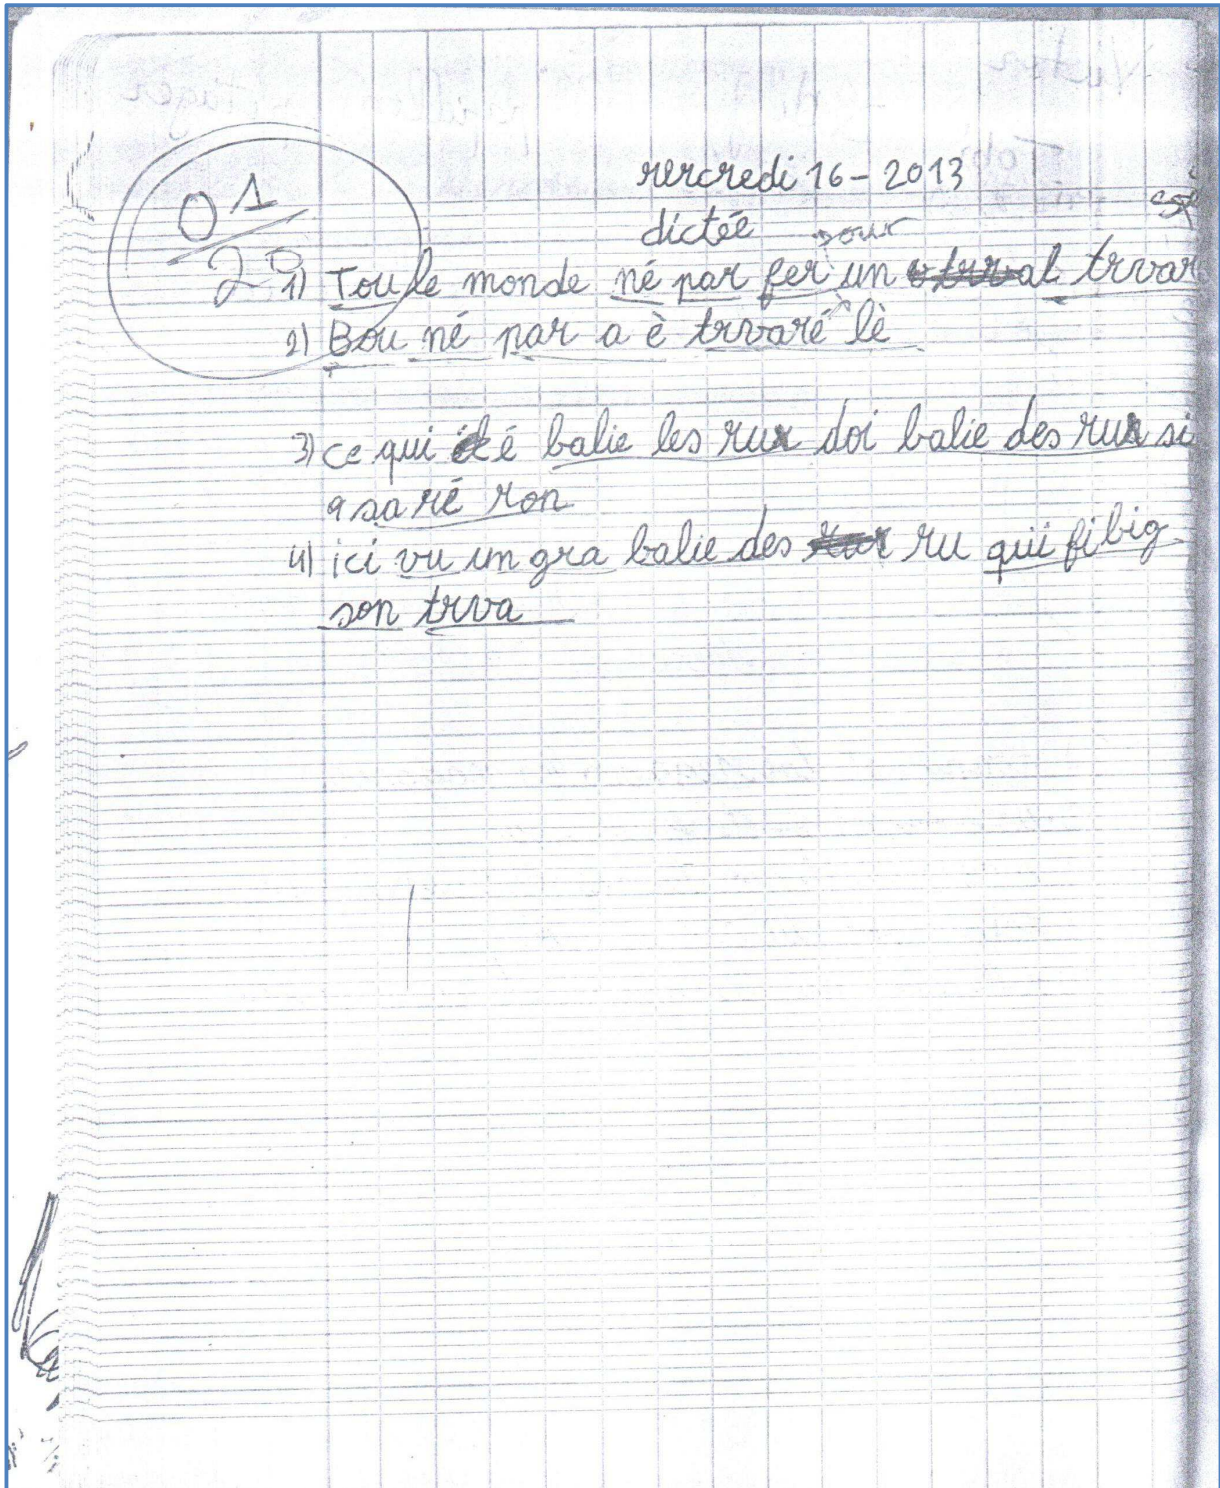 01/20
mercredi 16-2013
dictée
pour
1) Tou le monde né par fer un al trvar
2) Bou né par a è trvaré lè
3) ce qui été balie les rux doi balie des rux si
a sa ré ron
4) ici vu un gra balie des ru qui fi big
son trva